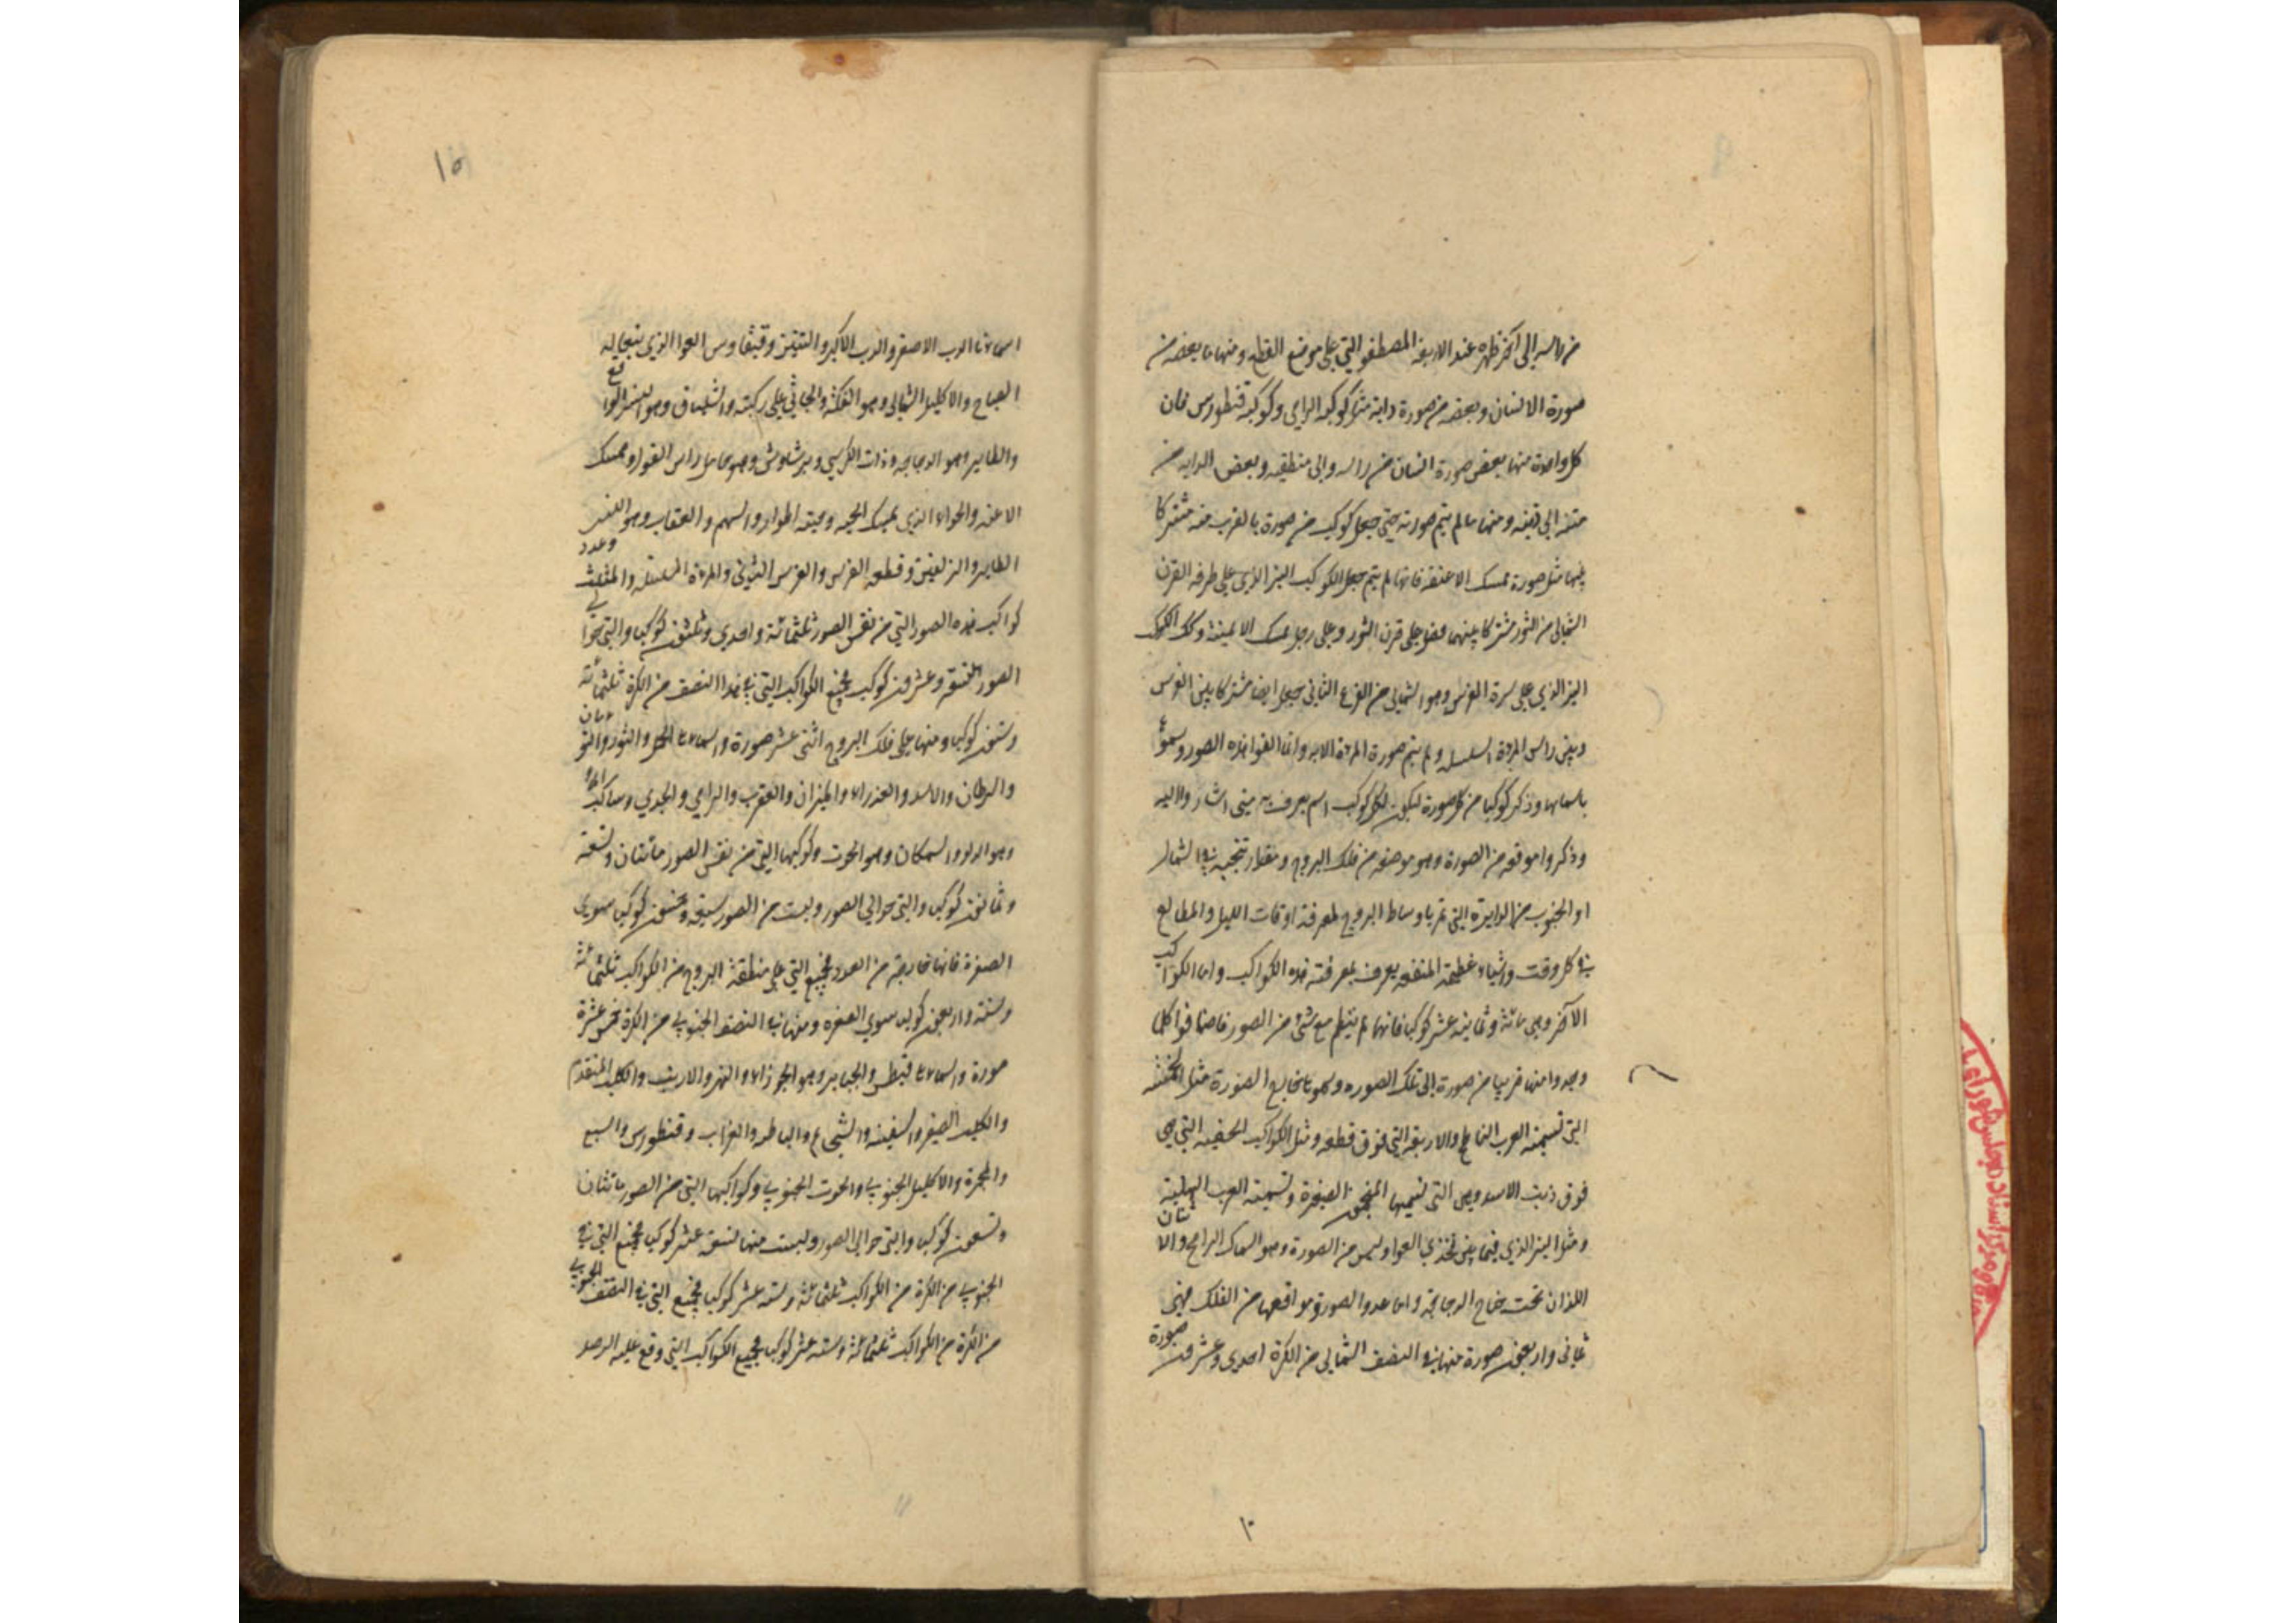 من راسه الى آخر ظهره عند الاربعة المصطفة التي على موضع القطع ومنها ما بعضه من
صورة الانسان وبعضه من صورة دابة مثل كوكبة الرامي وكوكبة قنطورس فان
كل واحدة منها بعض صورة انسان من راسه والى منطقته وبعض الدابه من
متنه الى ذنبه ومنها ما لم يتم صورته حتى جعل كوكب من صورة بالقرب منه مشتركا
بينهما مثل صورة ممسك الاعنة فانها لم يتم جعل الكوكب النير الذي على طرف القرن
الشمالي من الثور مشتركا بينهما فصار على قرن الثور وعلى رجل ممسك الاعنة وكذلك الكوكب
النير الذي على سرة الفرس وهو الشمالي من الفرغ الثاني جعل ايضا مشتركا بين الفرس
وبين راس المرءة المسلسلة ولم يتم صورة المرءة الا به وانما الفوا هذه الصور وسموها
باسمائها وذكر كوكبا من كل صورة ليكون لكل كوكب اسم يعرف به متى اشاروا اليه
وذكروا موقعه من الصورة وهو موضعه من فلك البروج ومقدار تنحيه في الشمال
او الجنوب من الدايرة التي تمر باوساط البروج لمعرفة اوقات الليل والمطالع
في كل وقت واشياء عظيمة المنفعة يعرف بمعرفة هذه الكواكب واما الكواكب
الآخر وهي مائة وثمانية عشر كوكبا فانها لم ينتظم مع شئ من الصور فاضافوا كلما
وجدوا منها قريبا من صورة الى تلك الصوره وسموه خارج الصورة مثل
التي تسميه العرب الناطح والاربعة التي فوق قطعه ومثل الكواكب الخفية التي هي
فوق ذنب الاسد وهي التي يسميها المنجمون الضفيرة وتسميه العرب الهلبة
ومثل النير الذي فيما بين فخذي العوا وليس من الصورة وهو السماك الرامح والاثنان
اللذان تحت جناح الدجاجة واما عدد الصور ومواقعها من الفلك فهي
ثماني واربعون صورة منها في النصف الشمالي من الكرة احدى وعشرون صورة
١٠
١٥
اسمائها الدب الاصغر والدب الاكبر والتنين وقيفاوس والعوا الذي يقال له
الصياح والاكليل الشمالي وهو الفكة والجاثي على ركبته والشلياق وهو النسر الواقع
والطاير وهو الدجاجه وذات الكرسي وبرشاوش وهو حامل راس الغول وممسك
الاعنه والحواء الذي يمسك الحيه وحية الحواء والسهم والعقاب وهو النسر
الطاير والدلفين وقطعة الفرس والفرس الثاني والمرءة المسلسله والمثلث وعدد
كواكب هذه الصور التي من نفس الصور ثلثمائة واحدى وثلثون كوكبا والتي حوالي
الصور تسعة وعشرون كوكب فجميع الكواكب التي في هذا النصف من الكرة ثلثمائة
وستون كوكبا ومنها على فلك البروج اثنتى عشر صورة واسمائها الحمل والثور والتوأمان
والسرطان والاسد والعذراء والميزان والعقرب والرامي والجدي وساكب الماء
وهو الدلو والسمكتان وهو الحوت وكوكبها التي من نفس الصور مائتان وتسعة
وثمانون كوكبا والتي حوالي الصور وليست من الصور سبعة وخمسون كوكبا سوى
الضفرة فانها خارجة من العدد فجميع التي على منطقة البروج من الكواكب ثلثمائة
وستة واربعون كوكبا سوى الضفره ومنها في النصف الجنوبي من الكرة خمس عشرة
صورة واسمائها قيطس والجبار وهو الجوزاء والنهر والارنب والكلب المتقدم
والكلب الصغير والسفينة والشجاع والباطيه والغراب وقنطورس والسبع
والمجمرة والاكليل الجنوبي والحوت الجنوبي وكواكبها التي من الصور مائتان
وتسعون كوكبا والتي حوالي الصور وليست منها تسعة عشر كوكبا فجميع التي في
الجنوبي من الكرة من الكواكب ثلثمائة وستة عشر كوكبا فجميع التي في النصف الجنوبي
من الكرة من الكواكب ثلثمائة وستة عشر كوكبا فجميع الكواكب التي وقع عليه الرصد